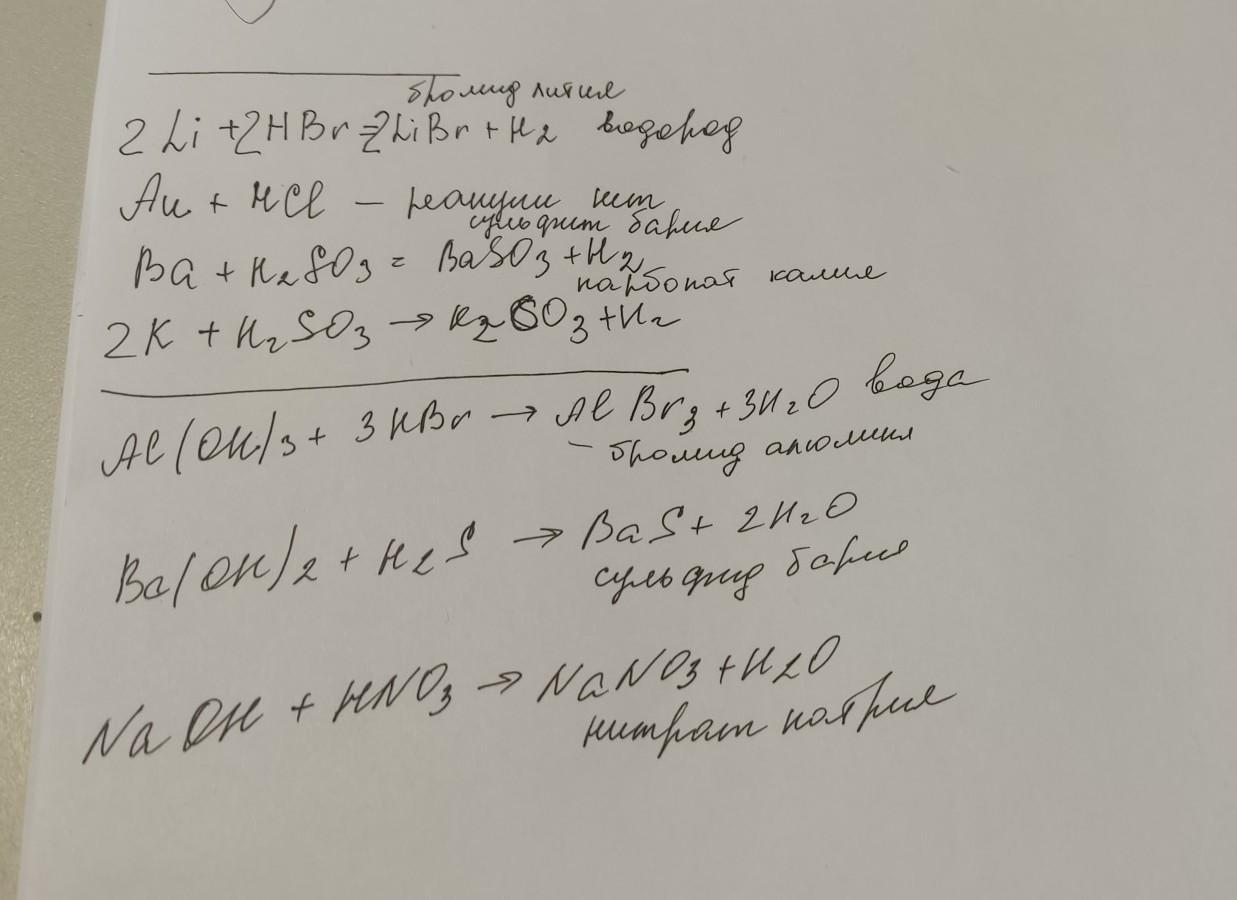 бромид лития
2 Li + 2HBr = 2LiBr + H2 водород
Au + HCl — реакции нет
сульфит бария
Ba + H2SO3 = BaSO3 + H2
карбонат калия
2K + H2SO3 → K2CO3 + H2
Al(OH)3 + 3HBr → AlBr3 + 3H2O вода
– бромид алюмин
Ba(OH)2 + H2S → BaS + 2H2O
сульфид бария
NaOH + HNO3 → NaNO3 + H2O
нитрат натрия